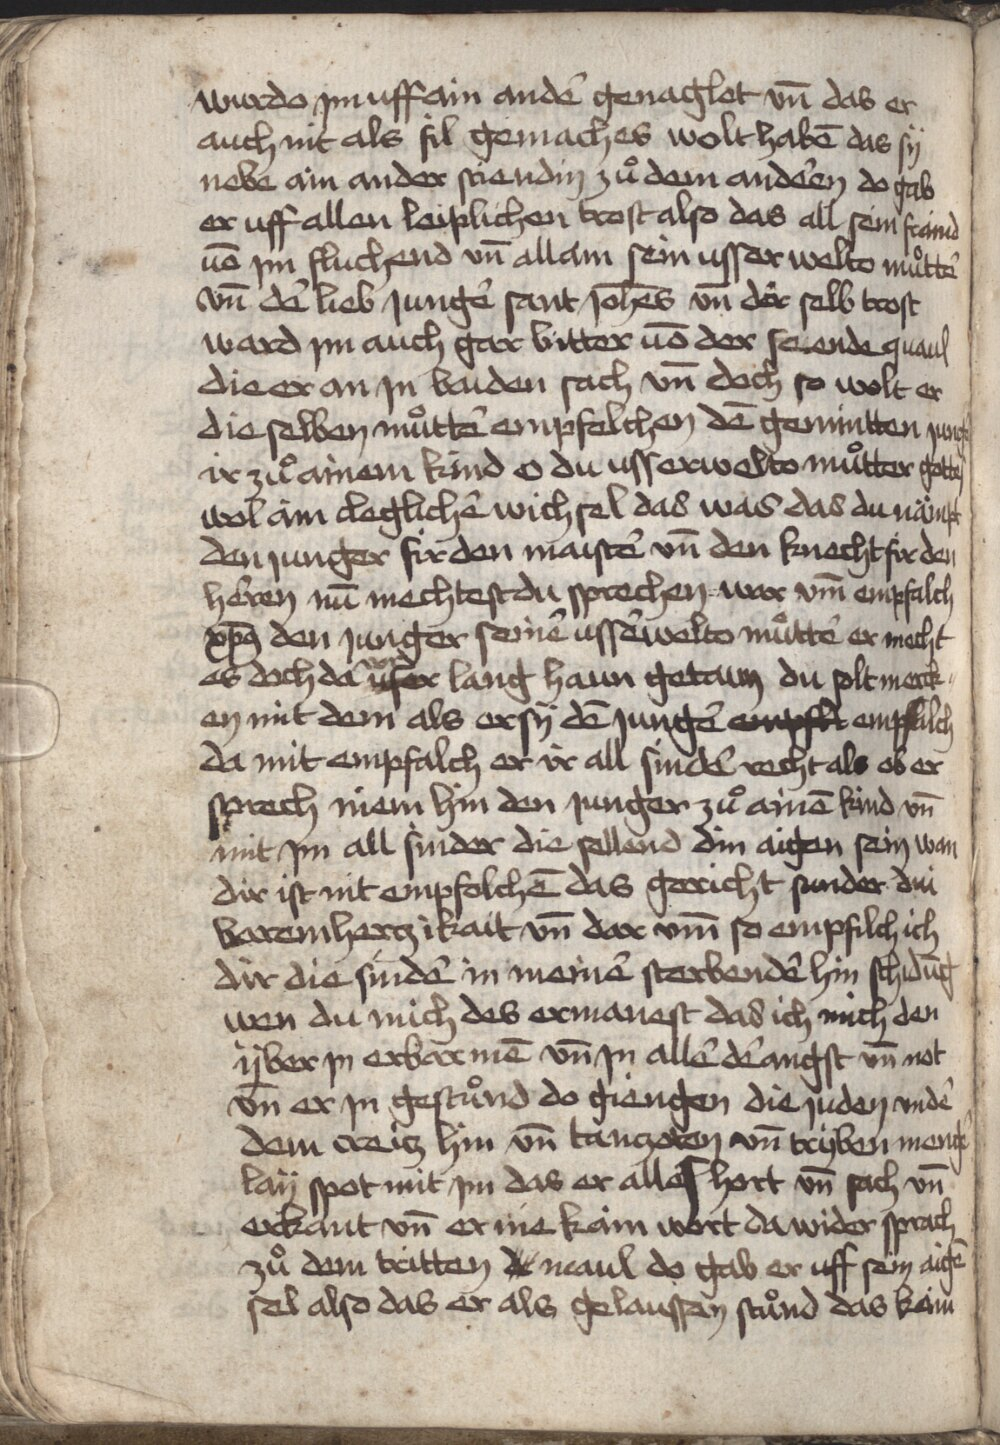 wurdo im uff ain andē genaglet vn̄ das er
auch nit als fil gemaches wolt habē das sÿ
nebē ain ander stiendin zů dem anderen do gab
er uff allen leiplichen trost also das all sein fraind
vō im fluchend vn̄ allain sein usserwelto můttē
vn̄ dē lieb jungē sant Johēs vn̄ der selb trost
ward im auch gar bitter vō der sēende quaul
die er an in baiden sach vn̄ doch so wolt er
die selben můttē empfelchen dē gemintten jung
ir zů ainem kind o du usserwelto můtter gottes
wol ain cleglichē wichsel das was das du nämpt
den junger fir den maistē vn̄ den knecht fir den
heren nū mechtest du sprechen war vm̄ empfalch
xp̄s den junger seinē ussēwelto můttē er mecht
es doch da vor lang haun getaun du solt merck
en mit dem als er sÿ dē jungē empfalch
da mit empfalch er ir all sindē recht als ob er
sprech niem hin den junger zů ainē kind vn̄
mit im all sinder die sellend din aigen sein wan
dir ist nit empfolchē das gericht sunder diu
baremherczikait vn̄ dar vm̄ so empfilch ich
dir die sindē in meinē sterbendē hin schidūg
wen du mich des ermanest das ich mich den
ÿber in erbarmē vn̄ in allē dē angst vn̄ not
vn̄ er in gestůnd do giengen die juden undē
dem creicz hin vn̄ tanczeten vn̄ tryben mengē
laÿ spot mit im das er alles hort vn̄ sach vn̄
erkant vn̄ er nie kain wort da wider sprach
zů dem tritten maul do gab er uff sein aigē
sel also das er als gelaussen stůnd das kain